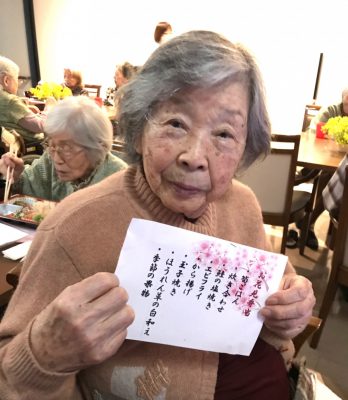 お花見弁当
・筍ごはん
・炊き合わせ
・鮭の塩焼き
・エビフライ
・から揚げ
・玉子焼き
・ほうれん草の白和え
・季節の果物